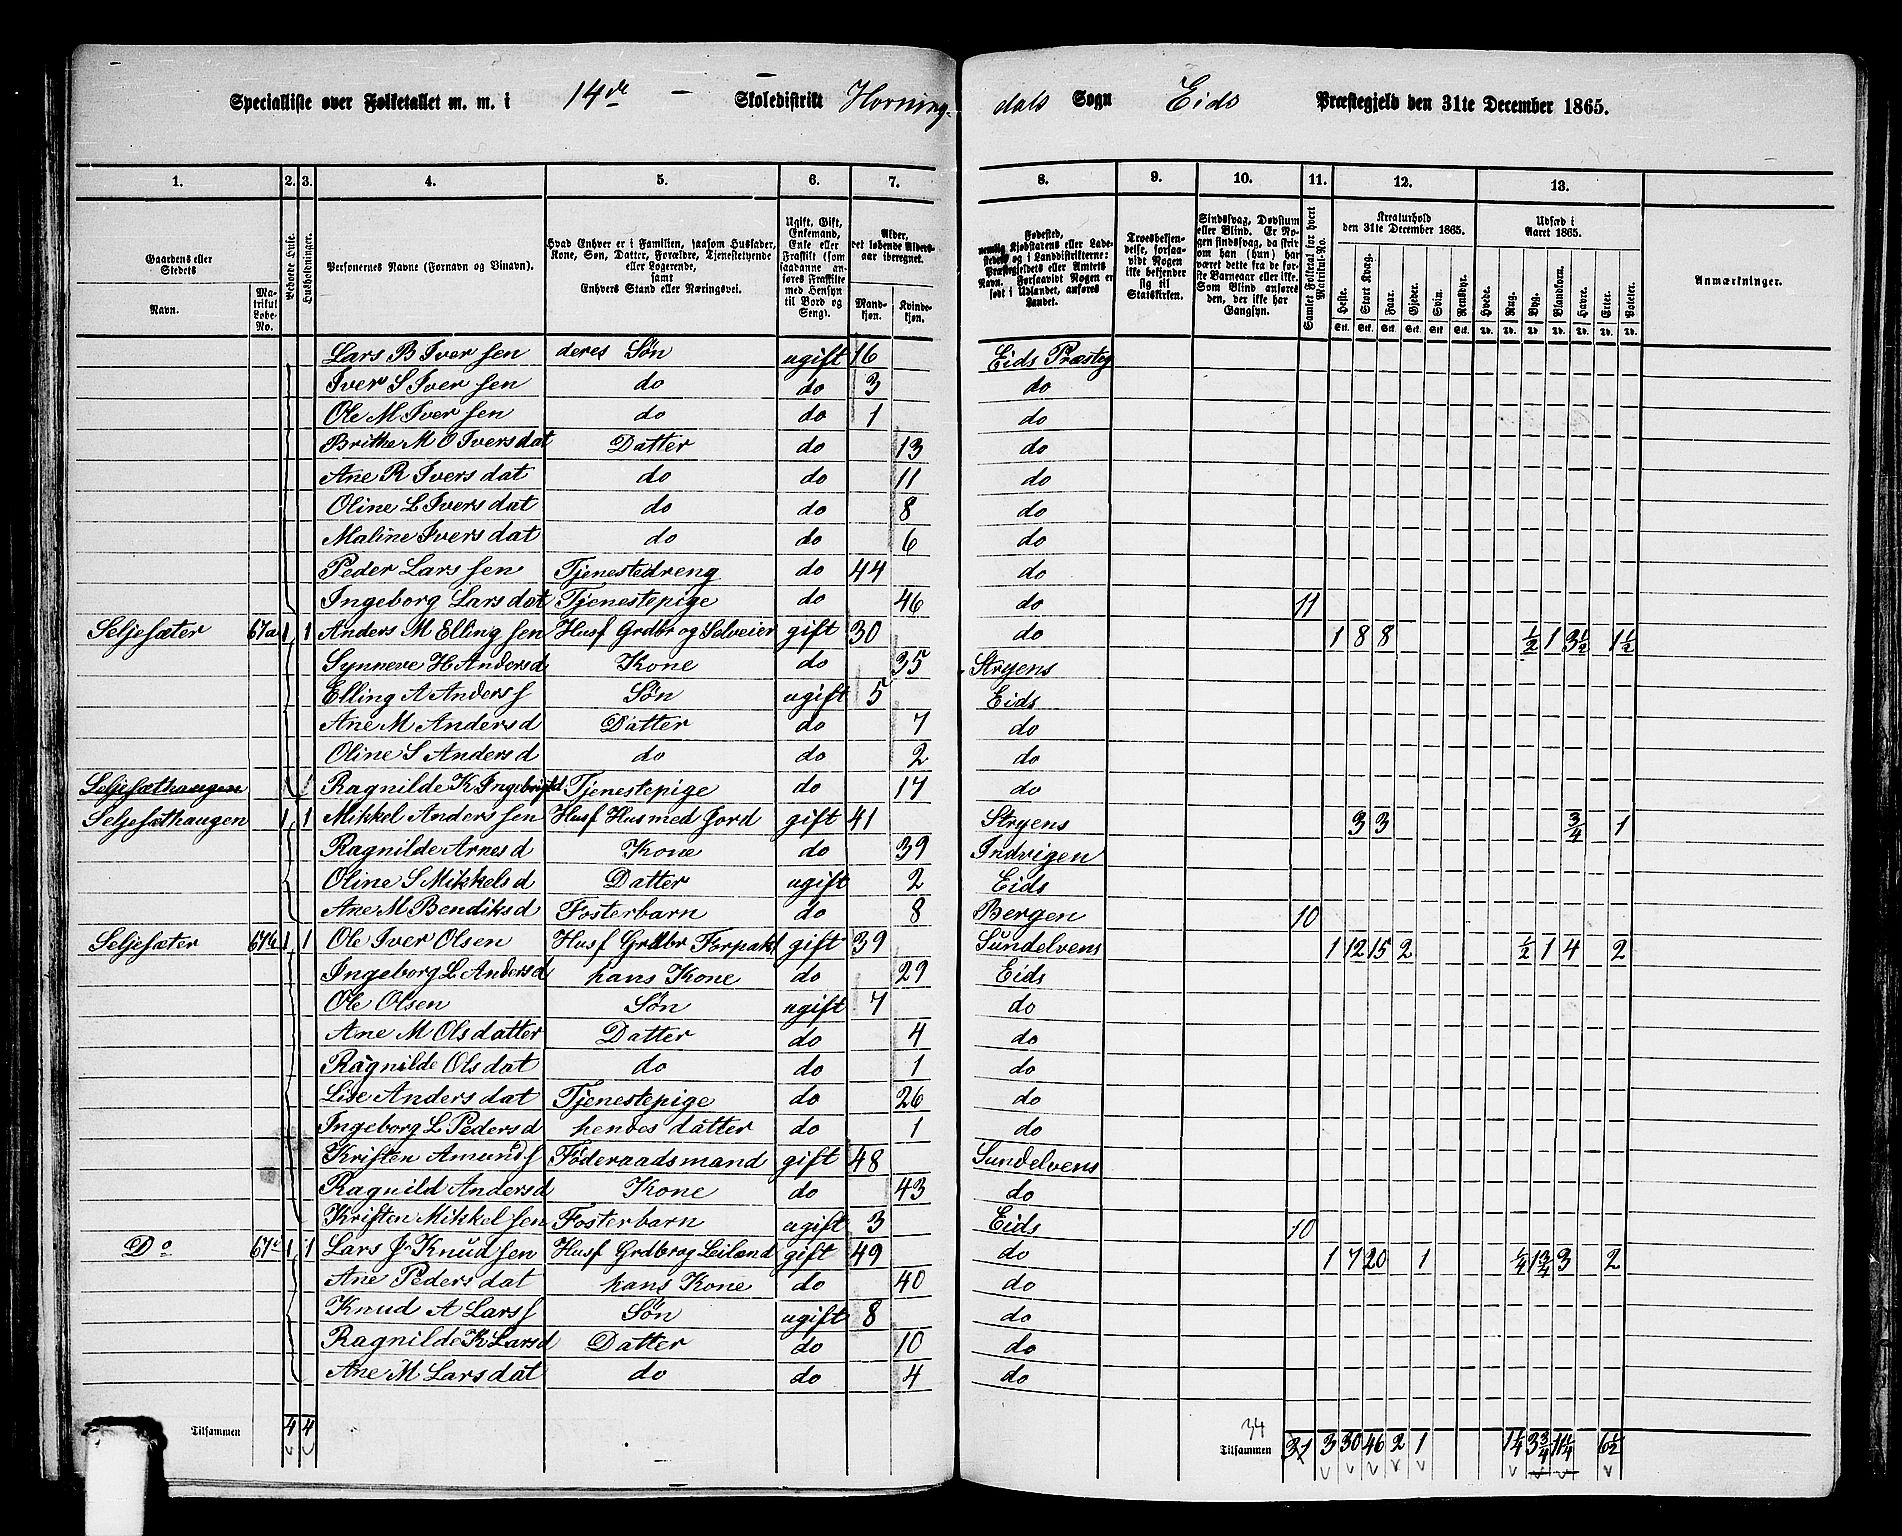 Specialliste over Folketallet m. m. i 14de - Skoledistrikt Hornindals Sogn Eids Præstegjeld den 31te December 1865.
1. 2. 3. 4. 5. 6. 7. 8. 9. 10. 11. 12. 13.
Gaardens eller Stedets
Navn.
Matrikul Løbe-No.
Beboede Huse.
Husholdninger.
Personernes Navne (Fornavn og Tilnavn).
Hvad Enhver er i Familien, saasom Husfader, Kone, Søn, Datter, Forældre, Tjenestetyende eller Logerende, samt Enhvers Stand eller Næringsvei.
Ugift, Gift, Enkemand, Enke eller Fraskilt (som saadanne anføres Fraskilte med Hensyn til Bord og Seng).
Alder, det løbende Aldersaar iberegnet.
Mandkjøn. Kvindekjøn.
Fødested, nemlig Kjøbstadens eller Ladestedets og i Landdistrikterne: Præstegjeldets eller Amtets Navn. Forsaavidt Nogen er født i Udlandet, anføres Landet.
Troesbekjendelse, forsaavidt Nogen ikke bekjender sig til Statskirken.
Sindssvag, Døvstum eller Blind. Er Nogen sindssvag, da skrives om han (hun) har været dette fra de første Barneaar eller ikke. Som Blind anføres den, der ikke har Gangsyn.
Samlet Folketal for hvert Matrikul-No.
Kreaturhold den 31te December 1865.
Heste. Stort Kvæg. Faar. Gjeder. Svin. Rensdyr.
Udsæd i Aaret 1865.
Hvede. Rug. Byg. Blandkorn. Havre. Erter. Poteter.
Anmærkninger.
Lars B Iversen deres Søn ugift 16 Eids Præsteg
Iver S Iversen do do 3 do
Ole M Iversen do do 1 do
Brithe M O Iversdat Datter do 13 do
Ane R Iversdat do do 11 do
Oline L Iversdat do do 8 do
Maline Iversdat do do 6 do
Peder Larssen Tjenestedreng do 44 do
Ingeborg Larsdat Tjenestepige do 46 do 11
Seljesæter 67a 1 1 Anders M Ellingsen Husf Grdbr og Selveier gift 30 do 1 8 8 1/2 1 3 1/2 1 1/2
Synneve H Andersd Kone do 35 Stryens
Elling A Anders f Søn ugift 5 Eids
Ane M Andersd Datter do 7 do
Oline S Andersd do do 2 do
Seljesæthaugen Ragnilde K Ingebrigtd Tjenestepige do 17 do
Seljesæthaugen 1 1 Mikkel Anderssen Husf Husmed Jord gift 41 Stryens 3 3 3/4 1
Ragnilde Arnesd Kone do 39 Indvigen
Oline S Mikkelsd Datter ugift 2 Eids
Ane M Bendiksd Fosterbarn do 8 Bergen 10
Seljesæter 67b 1 1 Ole Iver Olsen Husf Grdbr Forpakt gift 39 Sundelvens 1 12 15 2 1/2 1 4 2
Ingeborg L Andersd hans Kone do 29 Eids
Ole Olsen Søn ugift 7 do
Ane M Olsdatter Datter do 4 do
Ragnilde Olsdat do do 1 do
Lise Andersdat Tjenestepige do 26 do
Ingeborg L Pedersd hendes datter do 1 do
Kristen Amunds f Føderaadsmand gift 48 Sundelvens
Ragnild Andersd Kone do 43 do
Kristen Mikkelsen Fosterbarn ugift 3 Eids 10
Do 67c 1 1 Lars J Knudsen Husf Grdbr og Leilænd gift 49 do 1 7 20 1 1/4 1 3/4 3 2
Ane Pedersdat hans Kone do 40 do
Knud A Lars f Søn ugift 8 do
Ragnilde K Larsd Datter do 10 do
Ane M Larsdat do do 4 do
Tilsammen 4 4
34
Tilsammen 31 3 30 46 2 1 1 1/4 3 3/4 11 1/4 6 1/2